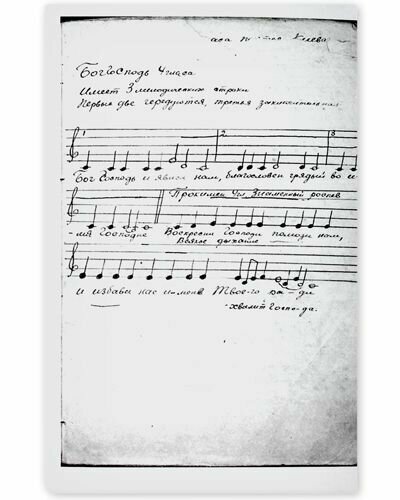 Бог Господь 4 гласа
Имеет 3 мелодических строки
Первые две чередуются, третья заключительная
1 2 3
Бог Господь и явися нам, благословен грядый во и-
-мя Господне
Прокимен 4 гл. Знаменный роспев
Воскресни Господи помози нам,
Всякое дыхание
и избави нас имене Твое-го ра-ди
хвалит Госпо-да.